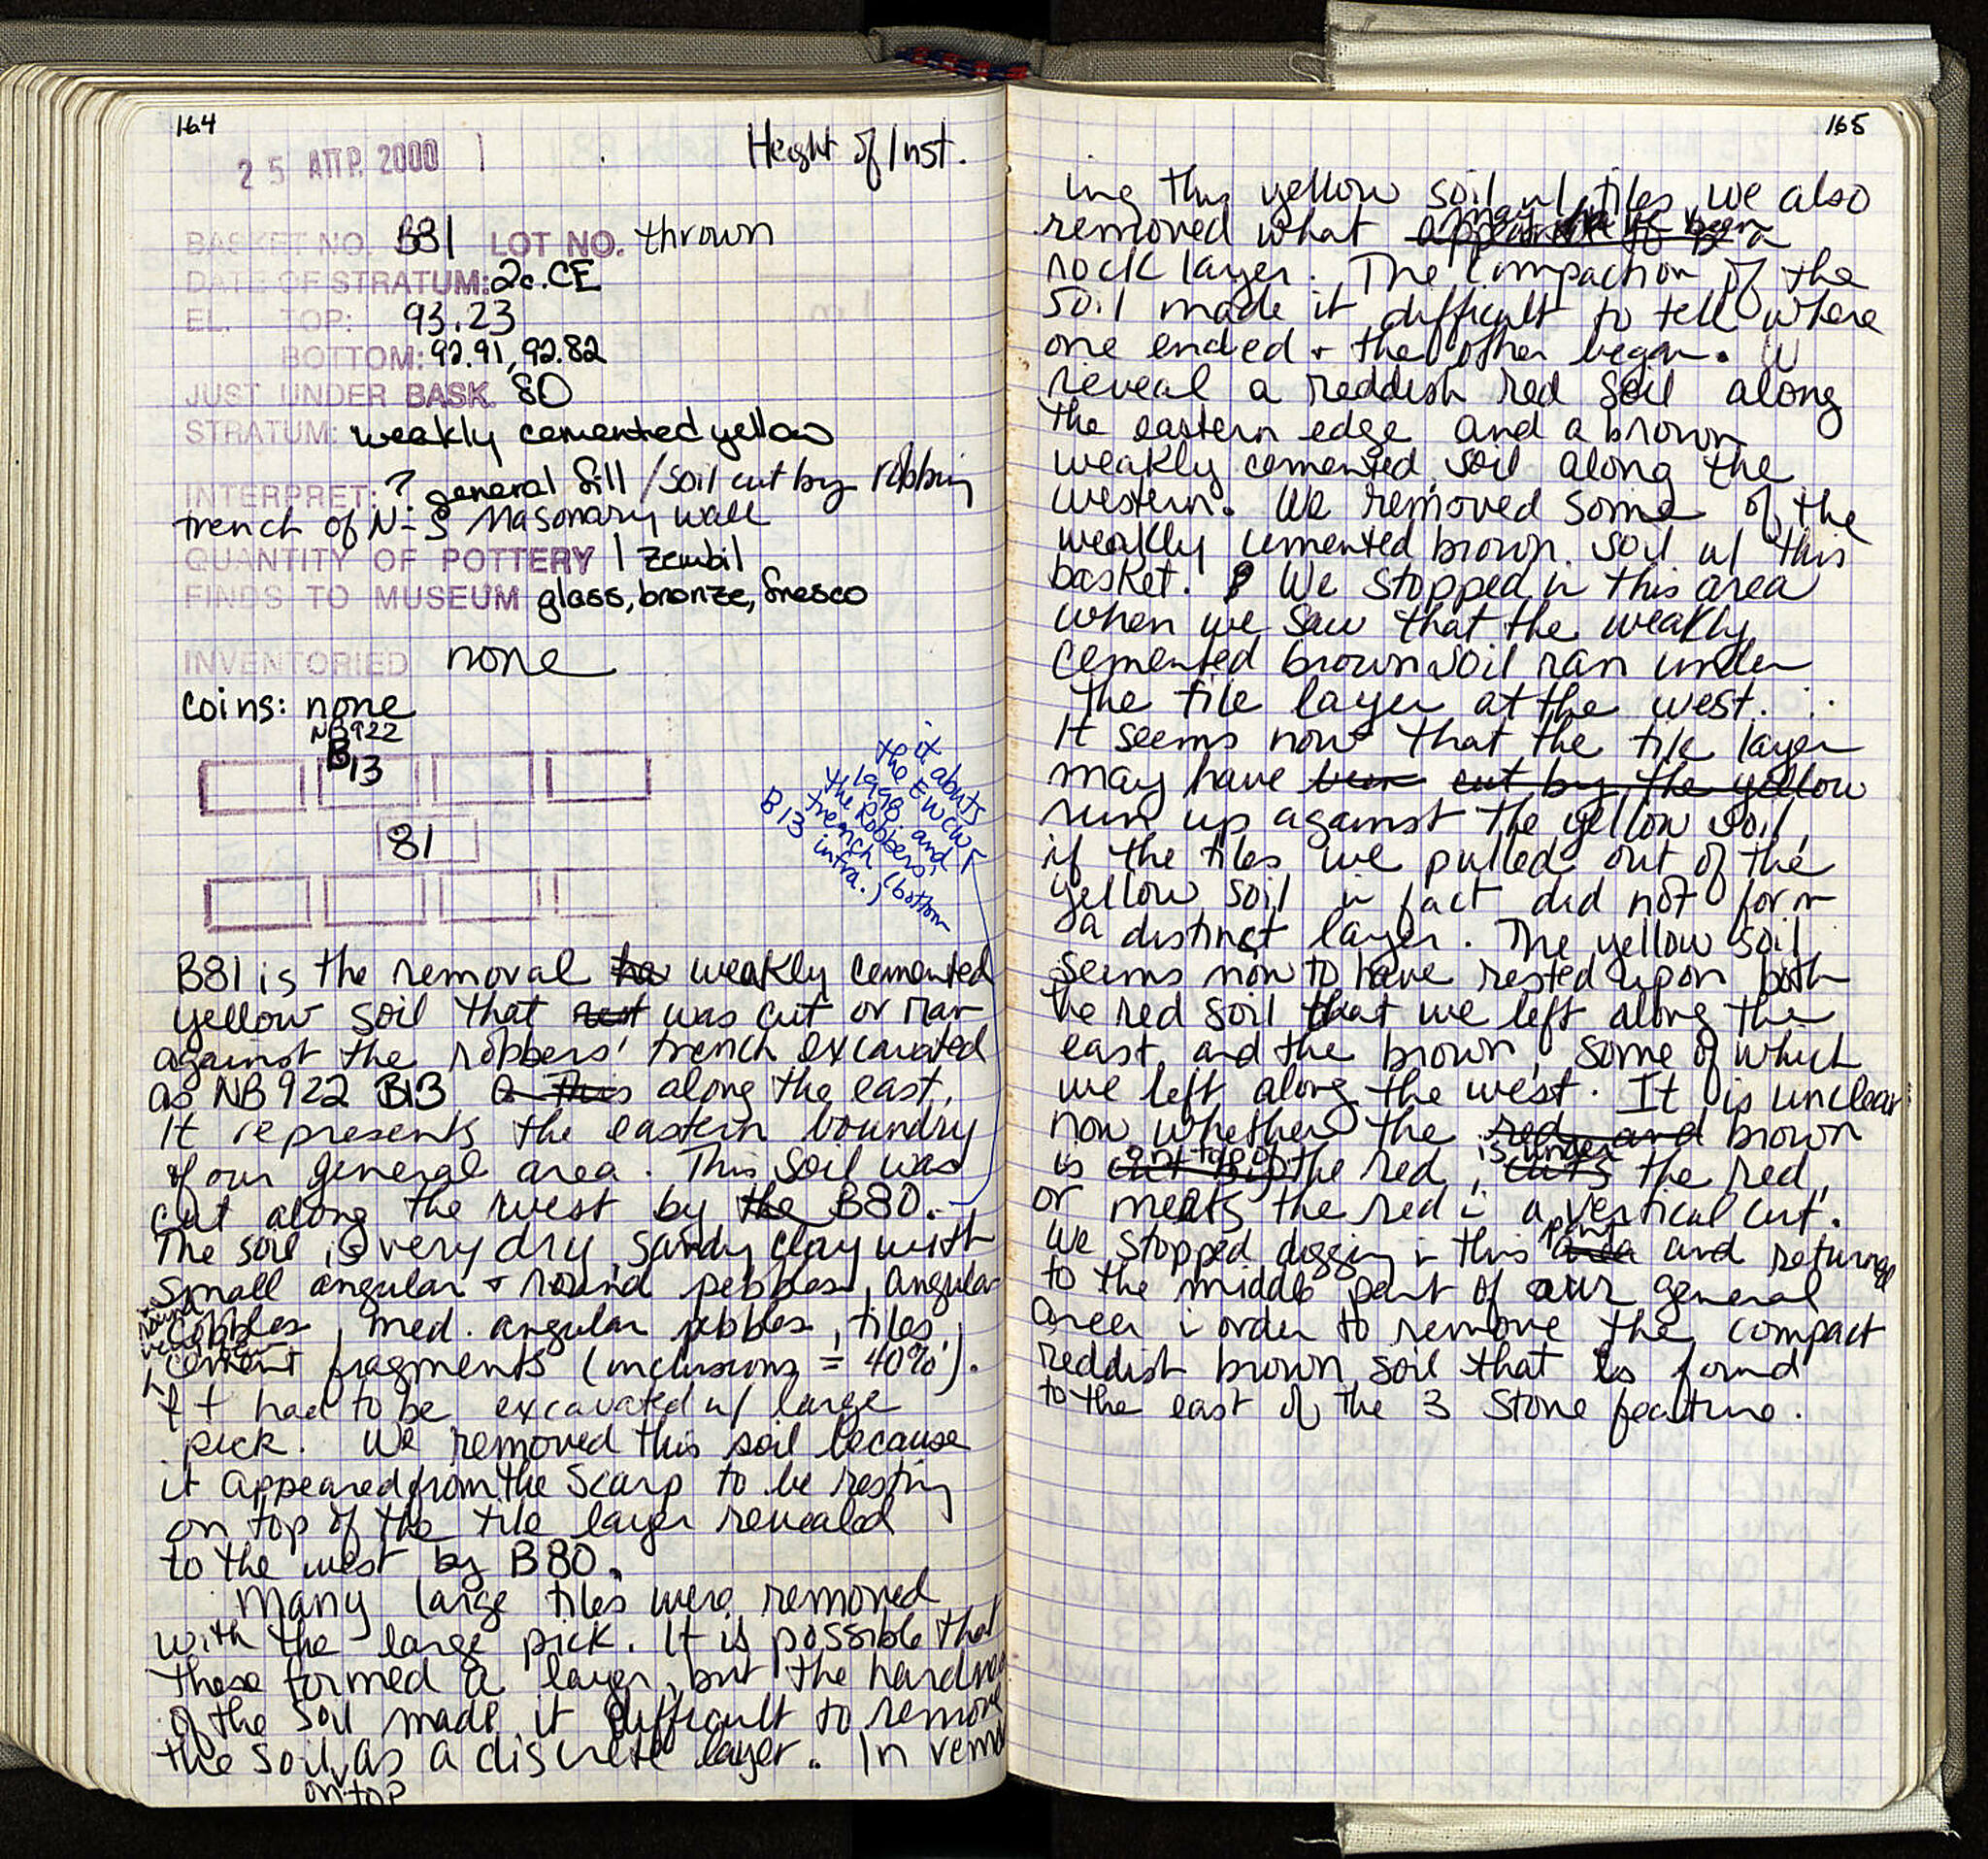 164
25 ΑΠΡ. 2000
Height of Inst.
BASKET NO. B81 LOT NO. thrown
DATE OF STRATUM: 2c. CE
EL. TOP: 93.23
BOTTOM: 92.91, 92.82
JUST UNDER BASK. 80
STRATUM: weakly cemented yellow
INTERPRET: ? general fill / soil cut by robbing
trench of N-S Masonary wall
QUANTITY OF POTTERY 1 zembil
FINDS TO MUSEUM glass, bronze, fresco
INVENTORIED none
coins: none
NB922
B13
81
it abuts
the EWCW
1998 and
the Robbers'
trench (bottom
B13 infra.)
B81 is the removal weakly cemented
yellow soil that was cut or ran
against the robbers' trench excavated
as NB922 B13 a This along the east.
It represents the eastern boundry
of our general area. This soil was
cut along the west by the B80.
The soil is very dry sandy clay with
small angular + round pebbles, angular
+ round
cobbles, med. angular pebbles, tiles,
cement fragments (inclusions = 40%).
It had to be excavated w/ large
pick. We removed this soil because
it appeared from the scarp to be resting
on top of the tile layer revealed
to the west by B80.
Many large tiles were removed
with the large pick. It is possible that
these formed a layer, but the hardness
of the soil made it difficult to remove
the soil as a discrete layer. In remov
on top
165
ing this yellow soil w/ tiles we also
removed what may have been a
rock layer. The compaction of the
soil made it difficult to tell where
one ended + the other began. W
reveal a reddish red soil along
the eastern edge and a brown
weakly cemented soil along the
western. We removed some of the
weakly cemented brown soil w/ this
basket. We stopped in this area
when we saw that the weakly
cemented brown soil ran under
the tile layer at the west.
It seems now that the tile layer
may have been cut by the yellow
run up against the yellow soil,
if the tiles we pulled out of the
yellow soil in fact did not form
a distinct layer. The yellow soil
seems now to have rested upon both
the red soil that we left along the
east and the brown, some of which
we left along the west. It is unclear
now whether the red and brown
is on top of the red, is under cuts the red,
or meets the red in a vertical cut.
We stopped digging in this part area and returned
to the middle part of our general
area in order to remove the compact
reddish brown soil that is found
to the east of the 3 stone feature.